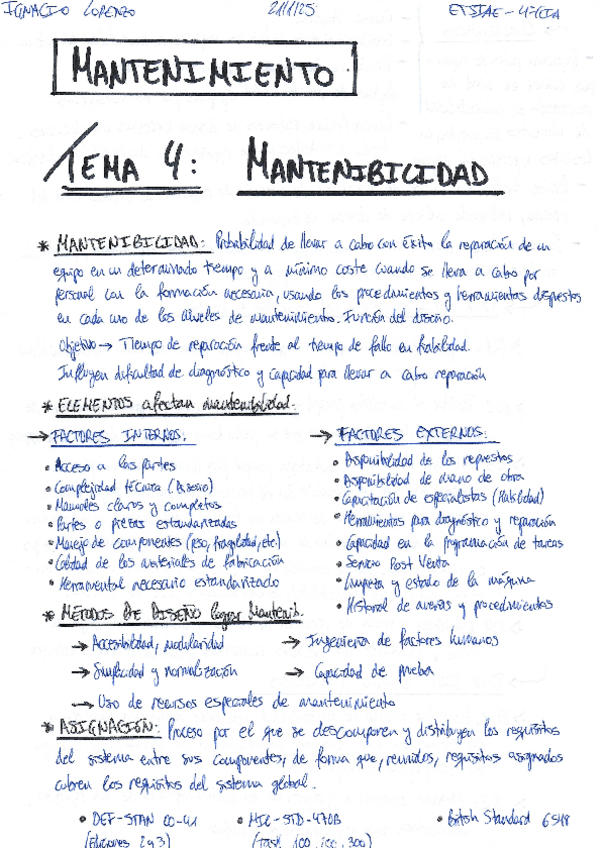 IGNACIO LORENZO 21/1/25 ETSIAE - 4ºCTA
MANTENIMIENTO
TEMA 4: MANTENIBILIDAD
* MANTENIBILIDAD: Probabilidad de llevar a cabo con éxito la reparación de un
equipo en un determinado tiempo y a mínimo coste cuando se lleva a cabo por
personal con la formación necesaria, usando los procedimientos y herramientas dispuestos
en cada uno de los niveles de mantenimiento. Función del diseño.
Objetivo → Tiempo de reparación frente al tiempo de fallo en fiabilidad.
Influyen dificultad de diagnóstico y capacidad para llevar a cabo reparación
* ELEMENTOS afectan mantenibilidad.
→ FACTORES INTERNOS:
• Acceso a las partes
• Complejidad técnica (Diseño)
• Manuales claros y completos
• Partes o piezas estandarizadas
• Manejo de componentes (peso, fragilidad, etc.)
• Calidad de los materiales de fabricación
• Herramental necesario estandarizado
→ FACTORES EXTERNOS:
• Disponibilidad de los repuestos
• Disponibilidad de mano de obra
• Capacitación de especialistas (Habilidad)
• Herramientas para diagnóstico y reparación
• Capacidad en la programación de tareas
• Servicio Post Venta
• Limpieza y estado de la máquina
• Historial de averías y procedimientos
* MÉTODOS DE DISEÑO lograr Mantenib.
→ Accesibilidad, modularidad → Ingeniería de factores humanos
→ Simplicidad y normalización → Capacidad de prueba
→ Uso de recursos especiales de mantenimiento
* ASIGNACIÓN: Proceso por el que se descomponen y distribuyen los requisitos
del sistema entre sus componentes, de forma que, reunidos, requisitos asignados
cubren los requisitos del sistema global.
• DEF-STAN 00-41 • MIL-STD-470B • British Standard 6548
(Ediciones 2 y 3) (Task 100, 200, 300)